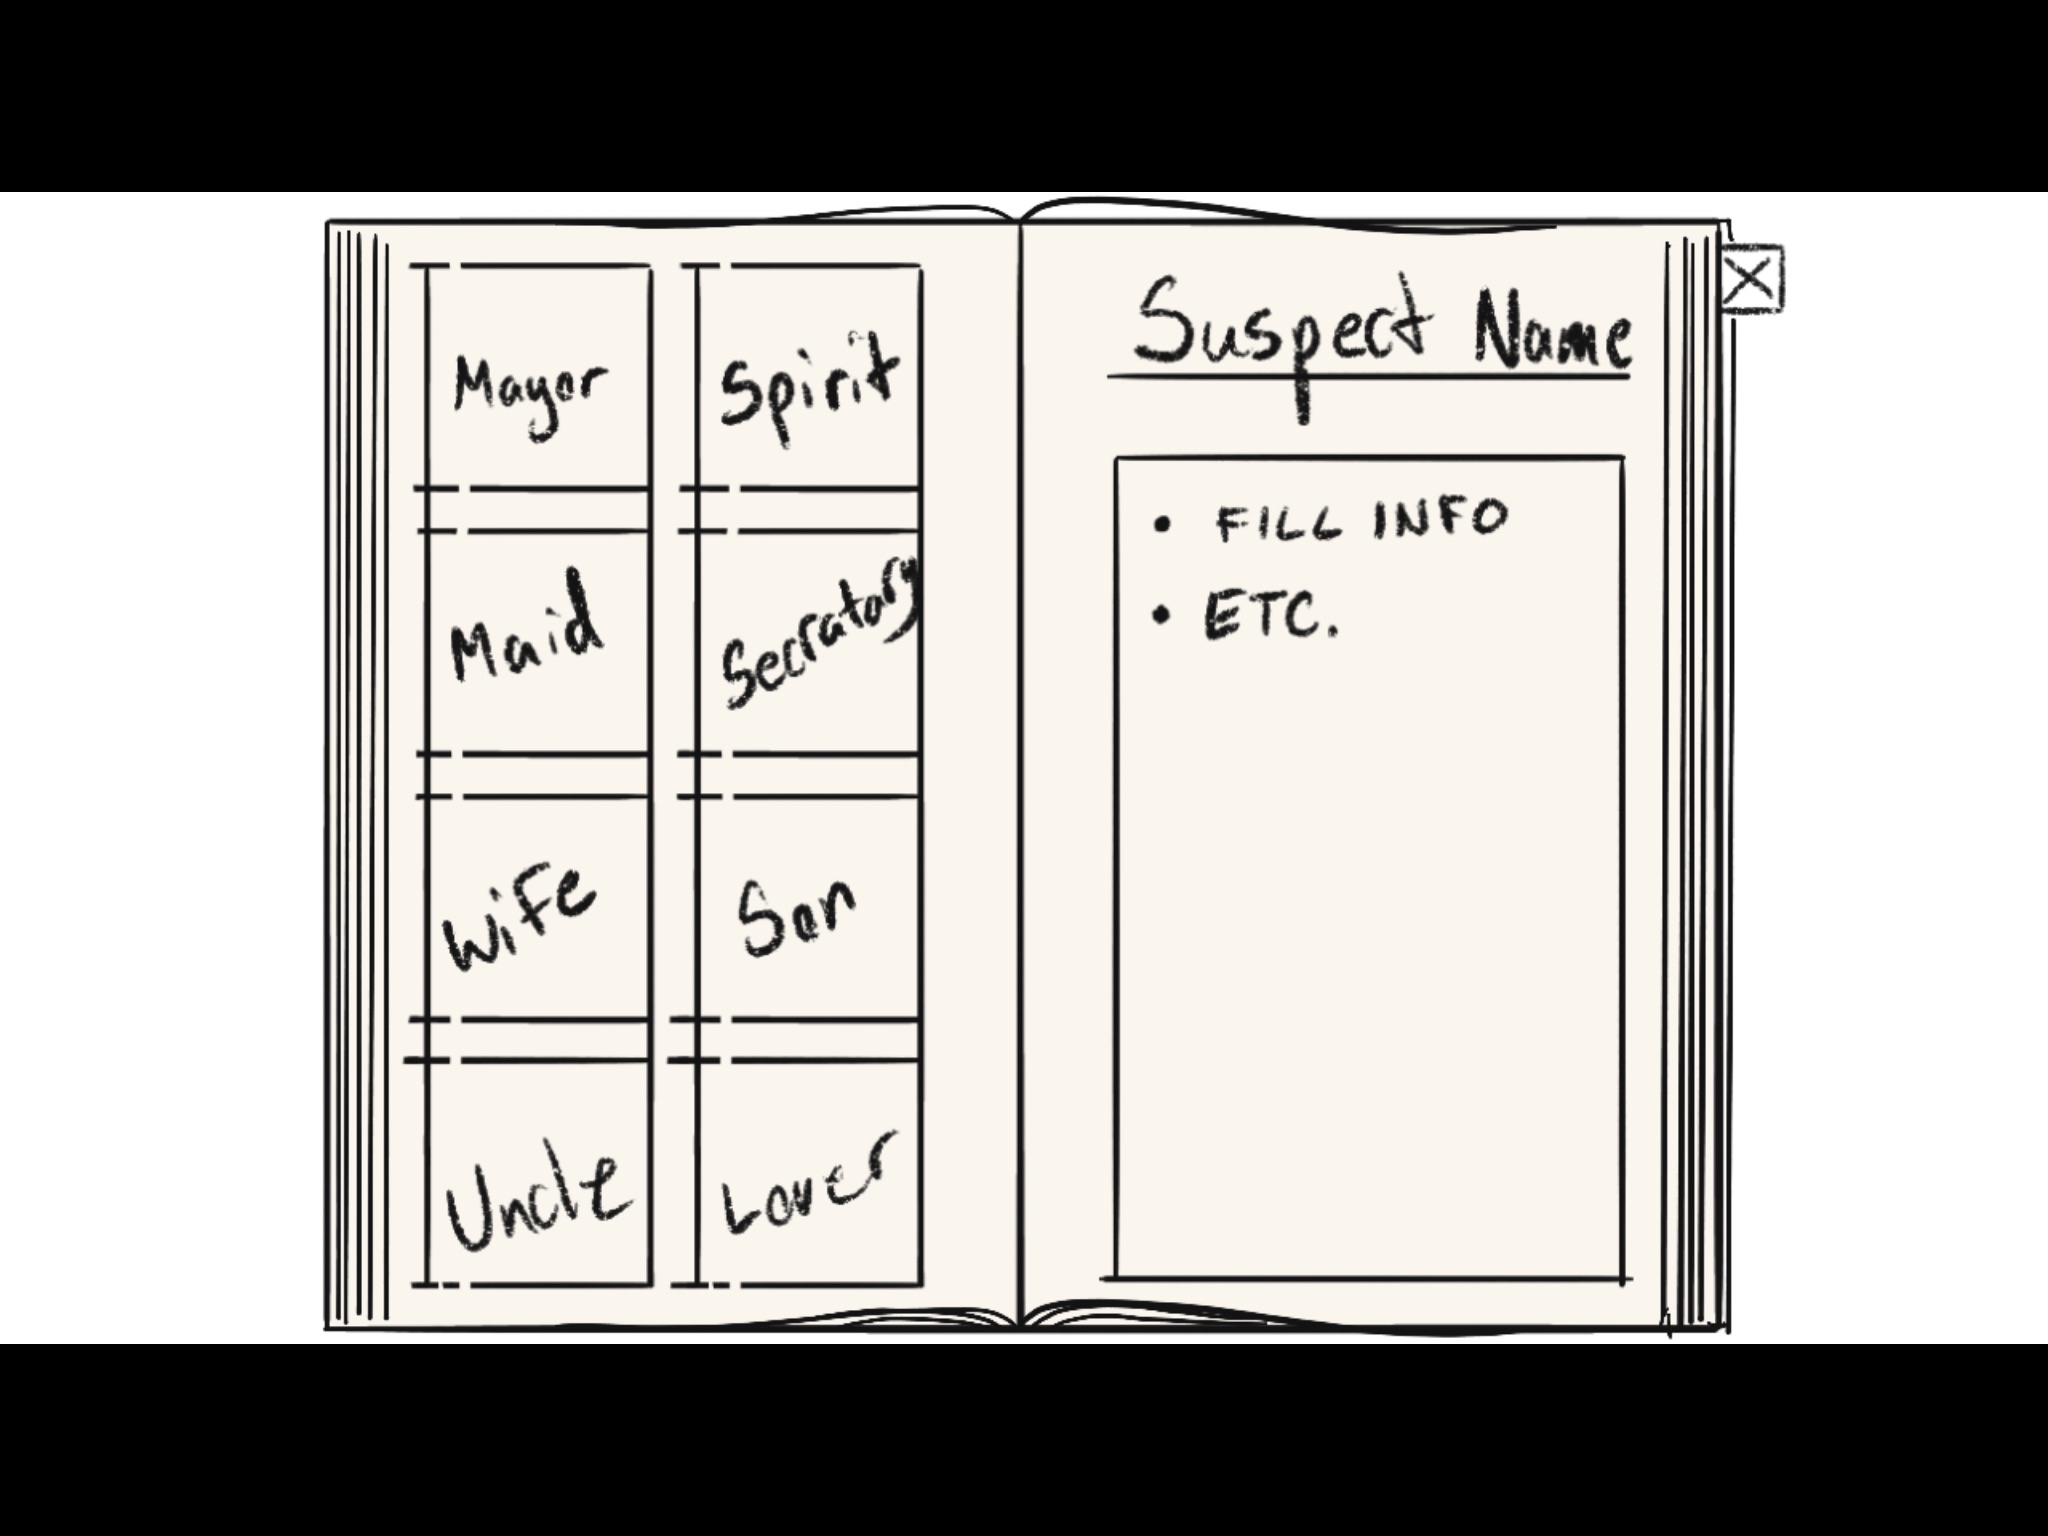 Mayor
Spirit
Maid
Secratary
Wife
Son
Uncle
Lover
Suspect Name
• FILL INFO
• ETC.